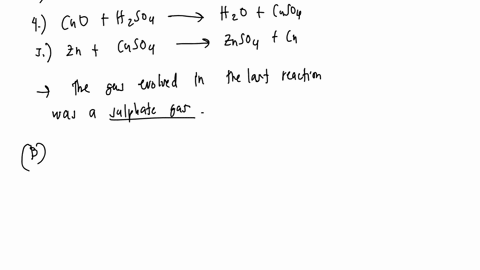 4.) CuO + H₂SO₄ → H₂O + CuSO₄
5.) Zn + CuSO₄ → ZnSO₄ + Cu
→ The gas evolved in the last reaction
was a sulphate gas.
(B)